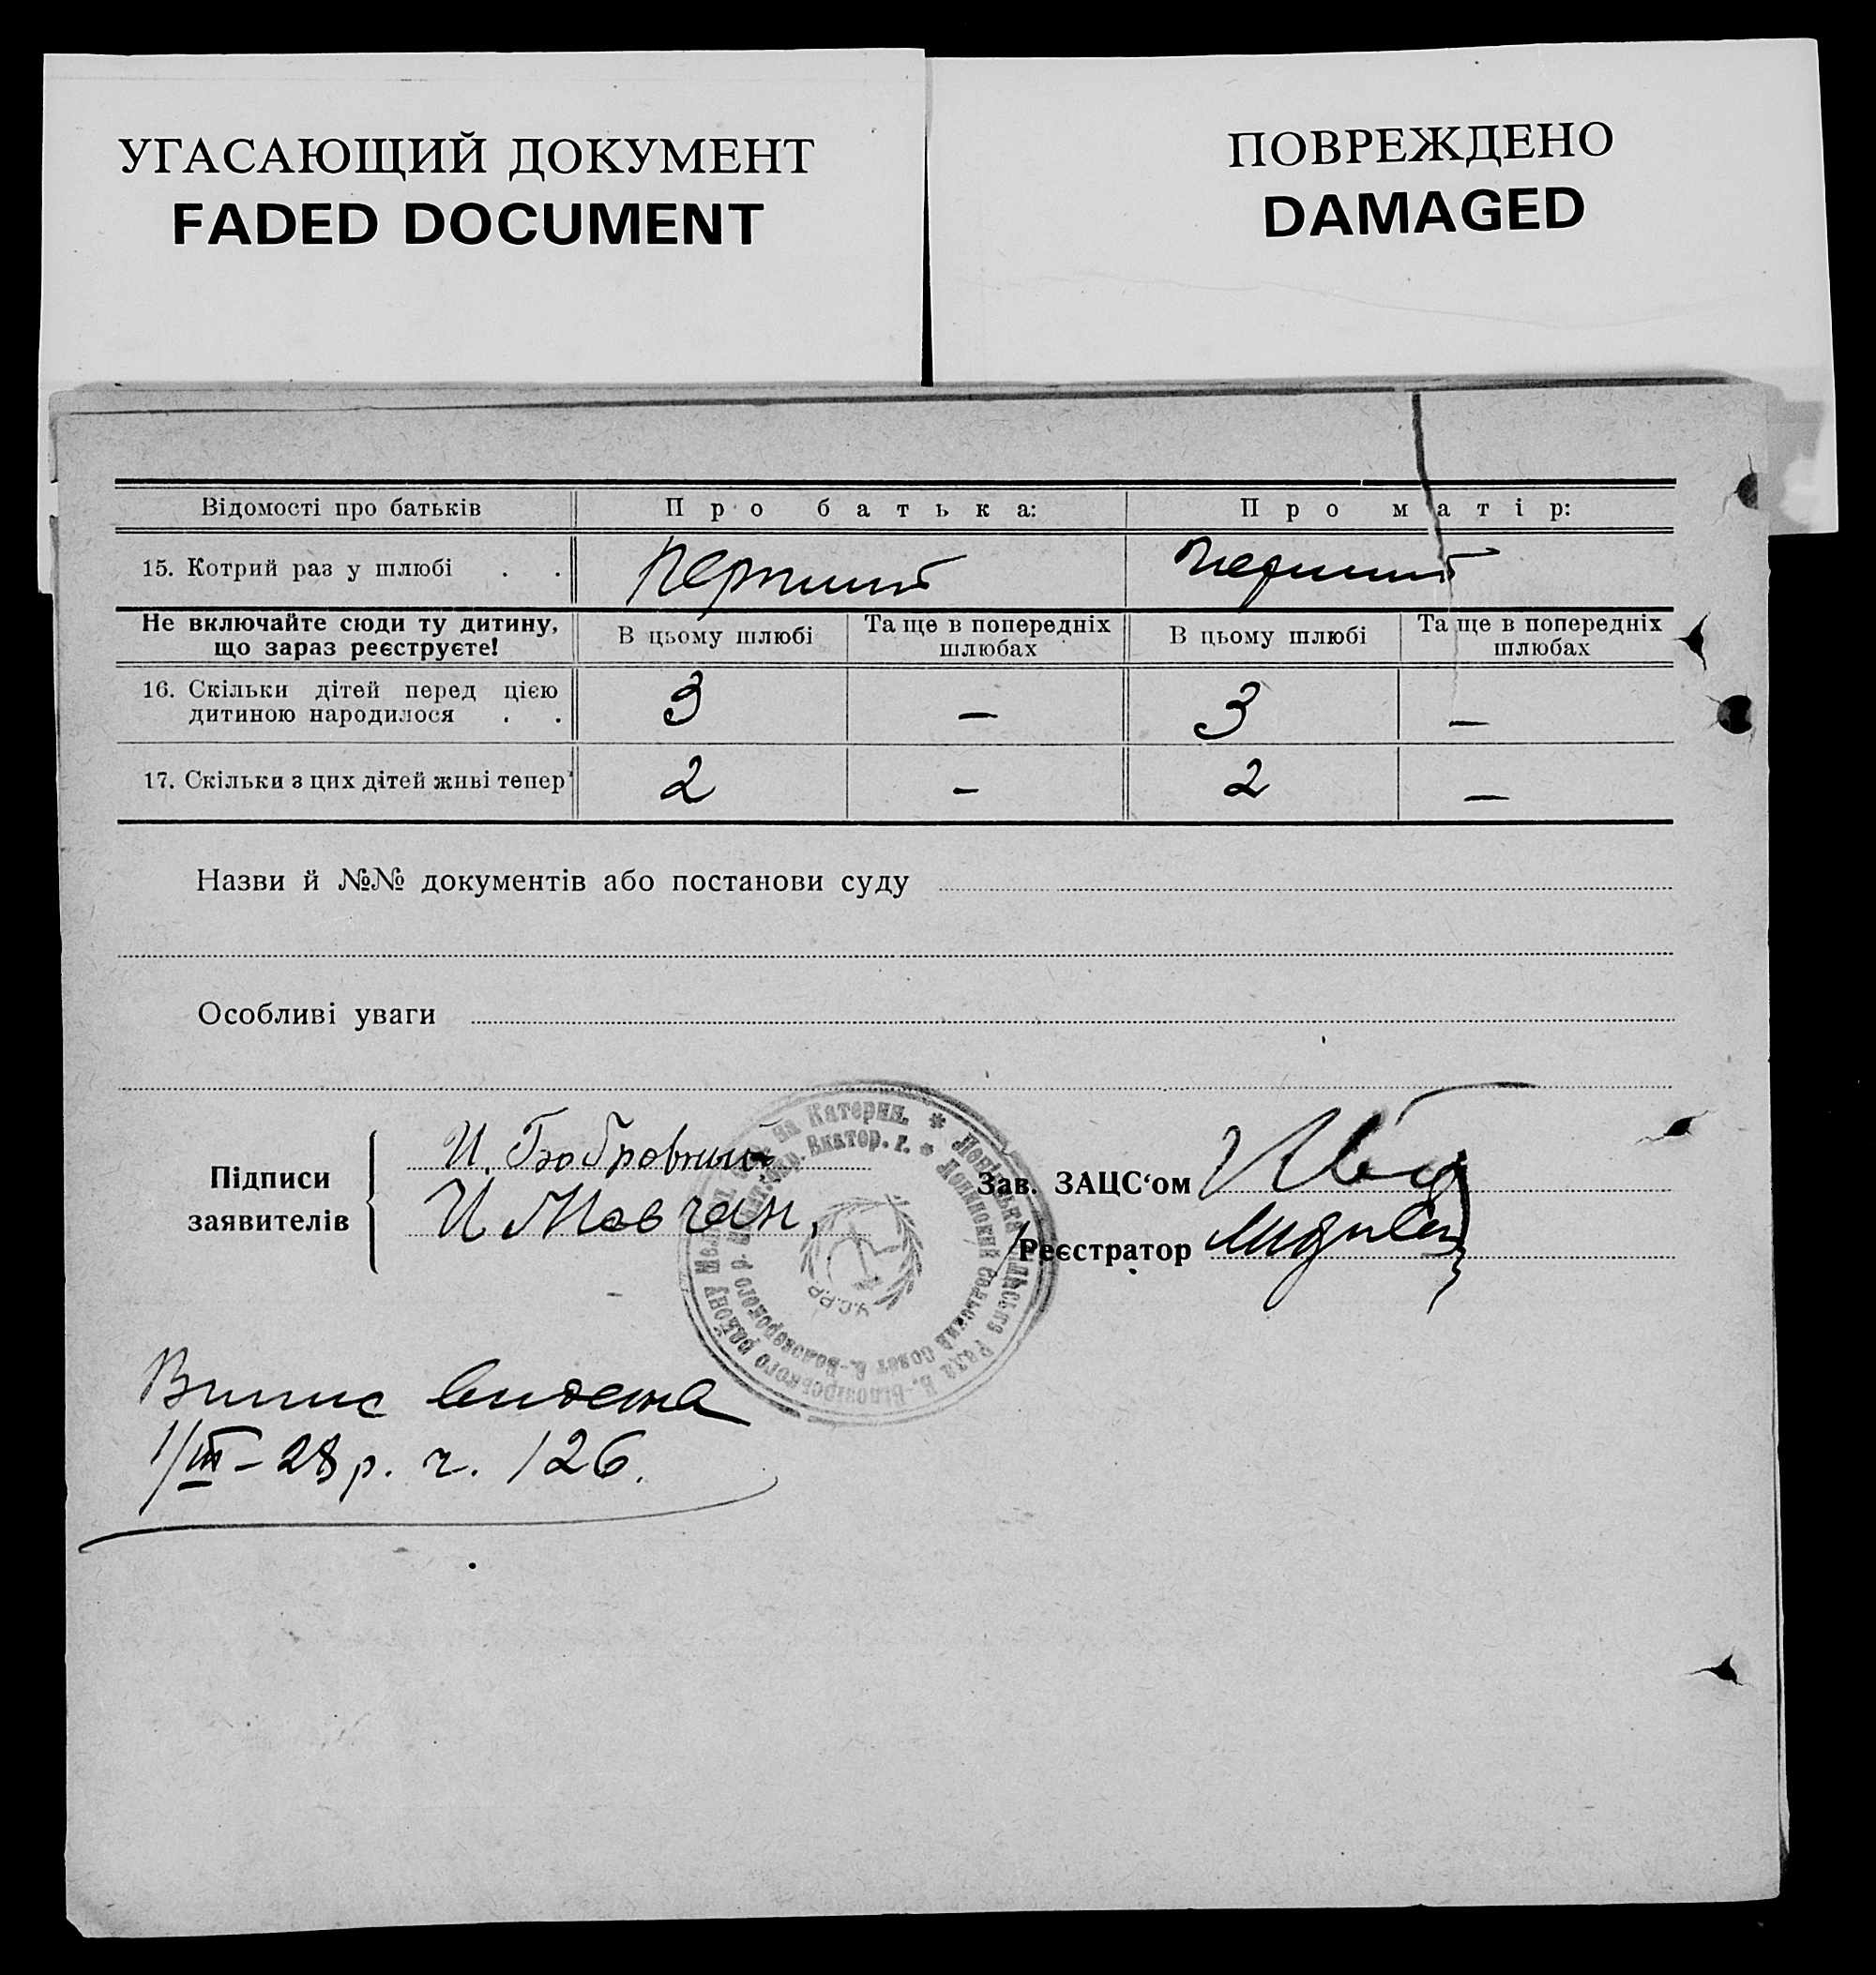 УГАСАЮЩИЙ ДОКУМЕНТ
FADED DOCUMENT
ПОВРЕЖДЕНО
DAMAGED
Відомості про батьків Про батька: Про матір:
15. Котрий раз у шлюбі . . перший перший
Не включайте сюди ту дитину,
що зараз реєструєте!
В цьому шлюбі
Та ще в попередніх
шлюбах
В цьому шлюбі
Та ще в попередніх
шлюбах
16. Скільки дітей перед цією
дитиною народилося . . 3 — 3 —
17. Скільки з цих дітей живі тепер 2 - 2 —
Назви й №№ документів або постанови суду
Особливі уваги
Підписи
заявителів
И. Бобровний
И Мовчан,
Зав. ЗАЦС‘ом
Реєстратор
на Катерин.
Рада В.-Білозірського району
У.С.Р.Р.
Випис видана
1/III-28 р. ч. 126.